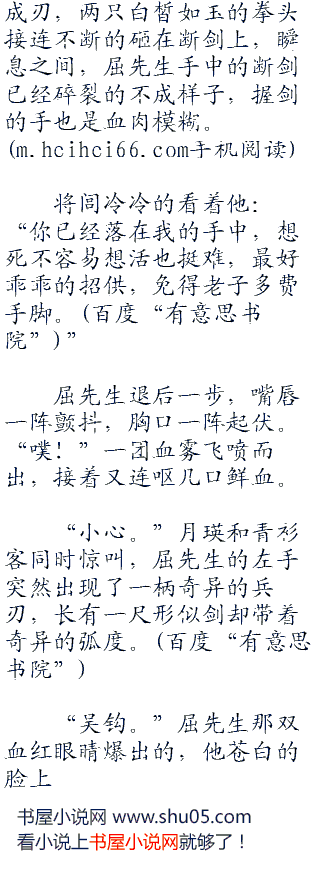 成刃，两只白皙如玉的拳头
接连不断的砸在断剑上，瞬
息之间，屈先生手中的断剑
已经碎裂的不成样子，握剑
的手也是血肉模糊。
(m.hcihci66.com手机阅读)
将闾冷冷的看着他：
“你已经落在我的手中，想
死不容易想活也挺难，最好
乖乖的招供，免得老子多费
手脚。(百度“有意思书
院”)”
屈先生退后一步，嘴唇
一阵颤抖，胸口一阵起伏。
“噗！”一团血雾飞喷而
出，接着又连呕几口鲜血。
“小心。”月瑛和青衫
客同时惊叫，屈先生的左手
突然出现了一柄奇异的兵
刃，长有一尺形似剑却带着
奇异的弧度。(百度“有意思
书院”)
“吴钩。”屈先生那双
血红眼睛爆出的，他苍白的
脸上
书屋小说网 www.shu05.com
看小说上书屋小说网就够了！